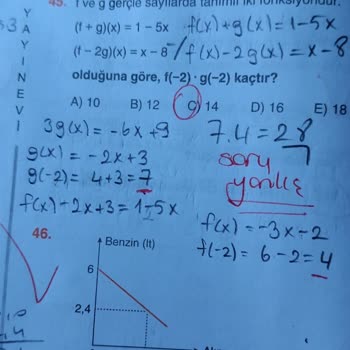 45. f ve g gerçel sayılarda tanımlı iki fonksiyondur.
(f + g)(x) = 1 – 5x f(x)+g(x)=1-5x
(f – 2g)(x) = x – 8 -/f(x)-2g(x)=x-8
olduğuna göre, f(–2) · g(–2) kaçtır?
A) 10 B) 12 C) 14 D) 16 E) 18
3g(x) = -6x+9
7.4=28
g(x) = -2x+3
g(-2) = 4+3=7
soru
yanlış
f(x)-2x+3=1-5x
f(x) = -3x-2
f(-2) = 6-2=4
46.
Benzin (lt)
6
2,4
YAYINEVİ